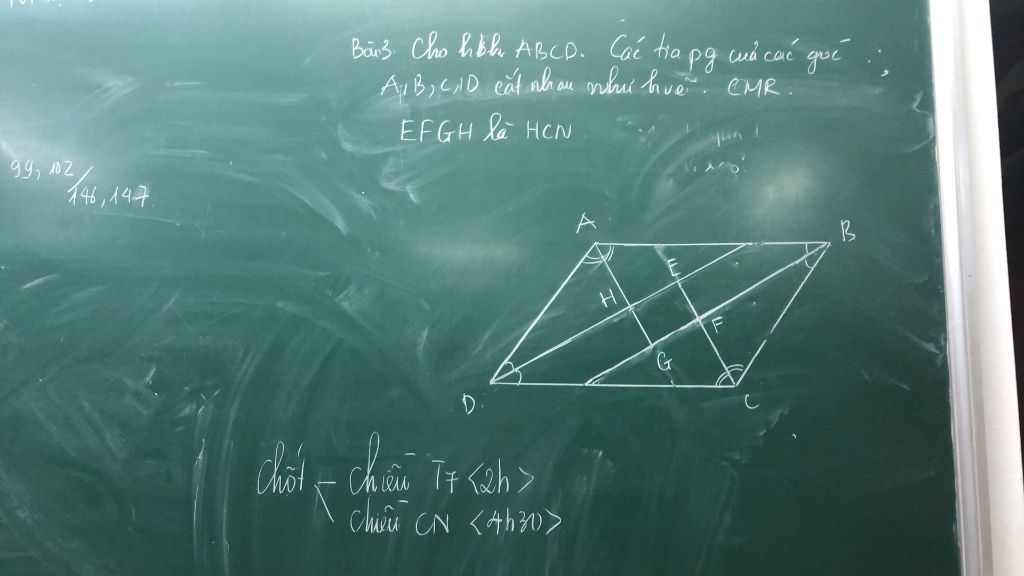 Bài 3. Cho hbh ABCD. Các tia pg của các góc
A, B, C, D cắt nhau như h vẽ. CMR.
EFGH là HCN
99, 102/
146, 147
A
B
E
H
F
G
D
C
Chốt - Chiều T7 <2h>
Chiều CN <4h30>